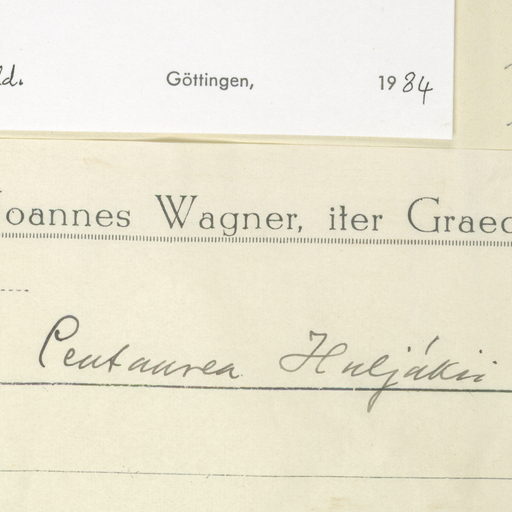 d. Göttingen, 1984
Joannes Wagner, iter Graec
Centaurea Huljákii